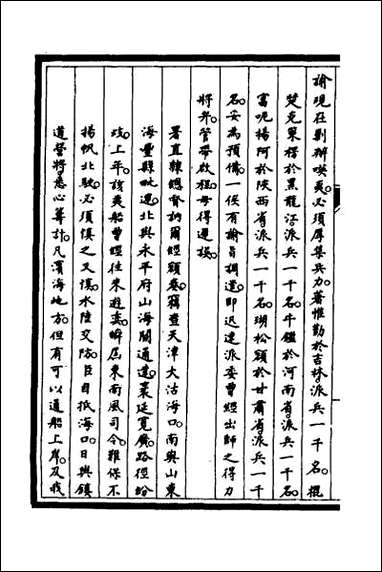 諭現在剿辦嘆夷必須厚集兵力著惟勤於吉林派兵一千名棍
楚克策楞於黑龍江派兵一千名牛鑑於河南省派兵一千名
富呢揚阿於陝西省派兵一千名瑚松額於甘肅省派兵一千
名妥為預備一俟有諭旨調遣即迅速派委曾經出師之得力
將弁管帶啟程毋得遲誤
署直隸總督訥爾經額奏竊查天津大沽海口南與山東
海豐縣毗連北與永平府山海關通連袤延寬廣路徑紛
歧上年該夷船曾經往來遊奕時屆東南風司令難保不
揚帆北駛必須慎之又慎水陸交防臣自抵海口日與鎮
道督將悉心籌計凡濱海地方但有可以通船上岸及我